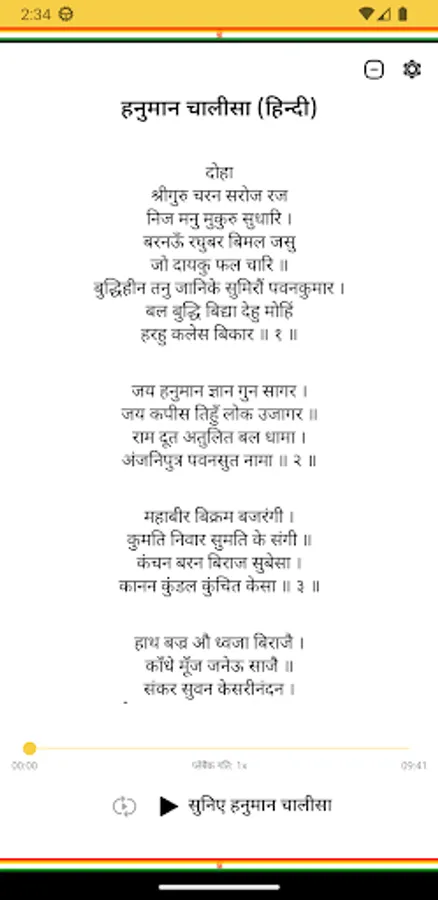 2:34
हनुमान चालीसा (हिन्दी)
दोहा
श्रीगुरु चरन सरोज रज
निज मनु मुकुरु सुधारि ।
बरनऊँ रघुबर बिमल जसु
जो दायकु फल चारि ॥
बुद्धिहीन तनु जानिके सुमिरौं पवनकुमार ।
बल बुद्धि बिद्या देहु मोहिं
हरहु कलेस बिकार ॥ १ ॥
जय हनुमान ज्ञान गुन सागर ।
जय कपीस तिहुँ लोक उजागर ॥
राम दूत अतुलित बल धामा ।
अंजनिपुत्र पवनसुत नामा ॥ २ ॥
महाबीर बिक्रम बजरंगी ।
कुमति निवार सुमति के संगी ॥
कंचन बरन बिराज सुबेसा ।
कानन कुंडल कुंचित केसा ॥ ३ ॥
हाथ बज्र औ ध्वजा बिराजै ।
काँधे मूँज जनेऊ साजै ॥
संकर सुवन केसरीनंदन ।
00:00 प्लेबैक गति: 1x 09:41
सुनिए हनुमान चालीसा